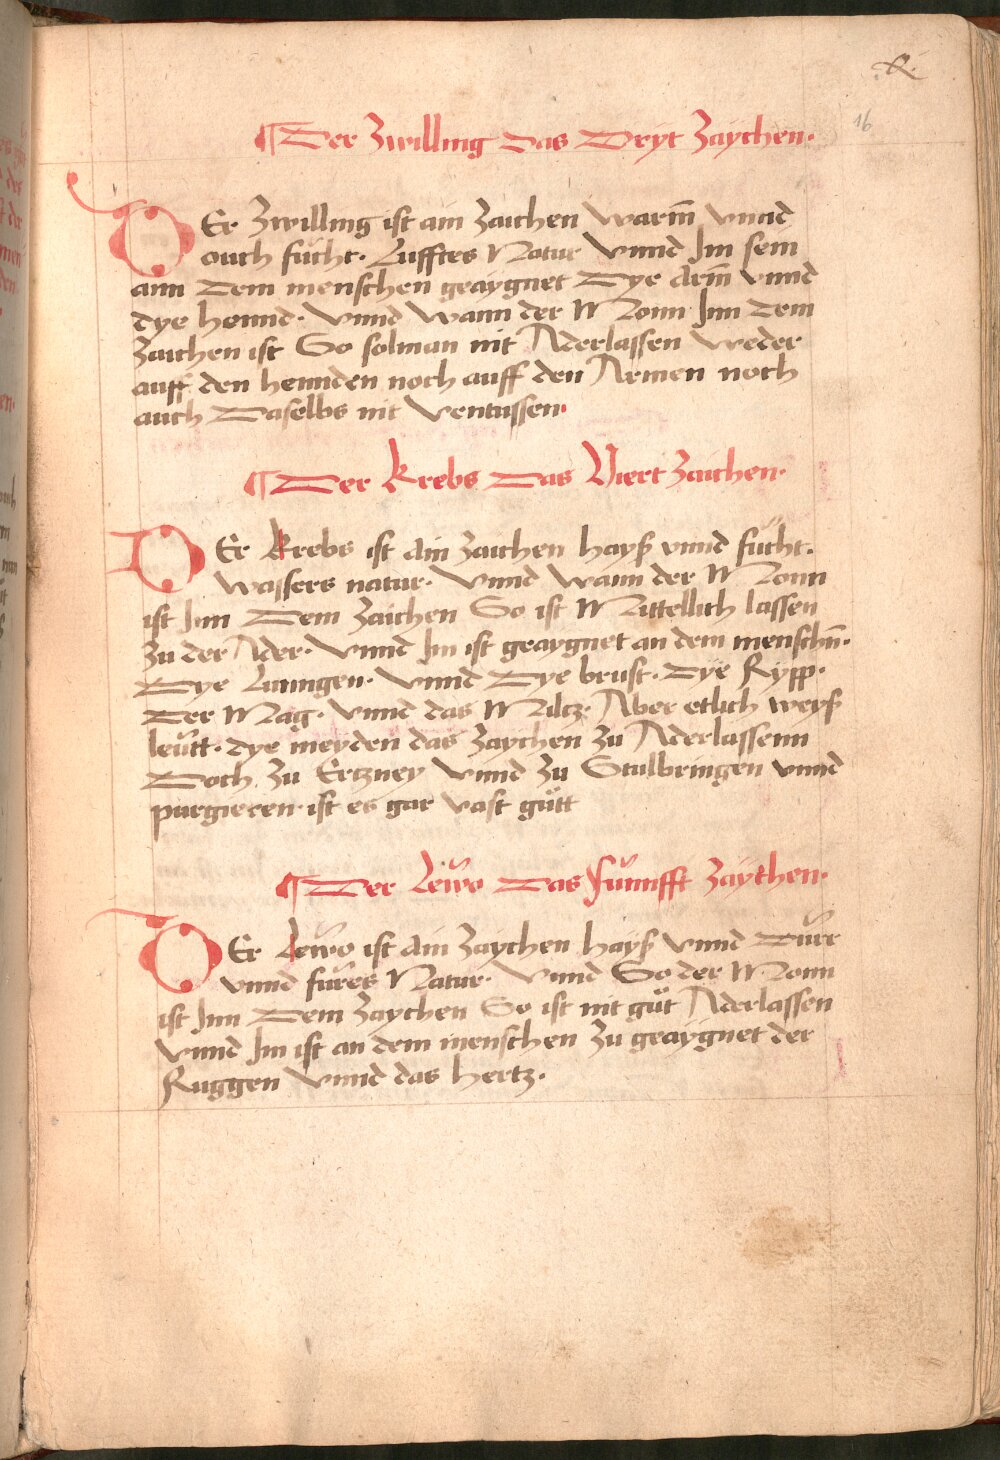 16
¶ Der Zwilling das Dryt Zaychen·
DEr Zwilling ist ain Zaichen warm̄ vnnd
ouch fücht· Lufftes Natur vnnd Im sein
ann dem menschen geaygnet Dye Arm̄ vnnd
dye hennd· vnnd wann der Monn Inn dem
Zaichen ist So solman nit Aderlassen weder
auff den hennden noch auff den Armen noch
auch Daselbs nit ventussen·
¶ Der Krebs Das Viert Zaichen·
DEr Krebs ist Ain Zaichen hayß vnnd fücht·
wassers natur· vnnd wann der Monn
ist Inn Dem Zaichen So ist Mittellich lassen
zu der Ader· vnnd Im ist geaygnet an dem menschn̄·
Dye Lunngen· vnnd Dye brust· Dye Rypp·
Der Mag· vnnd das Milcz· Aber etlich weyß
leütt· dye meyden das Zaychen zu Aderlassenn
Doch zu Ertzney vnnd zu Stulbringen vnnd
purgieren· ist es gar vast gütt
¶ Der Lewo Das fünnfft Zaychen·
DEr Lewo ist Ain Zaychen hayß vnnd Dürr
vnnd füres Natur· vnnd So der Monn
ist Inn Dem Zaychen So ist nit güt Aderlassen
vnnd Im ist an dem menschen zu geaygnet der
Ruggen vnnd das hertz·